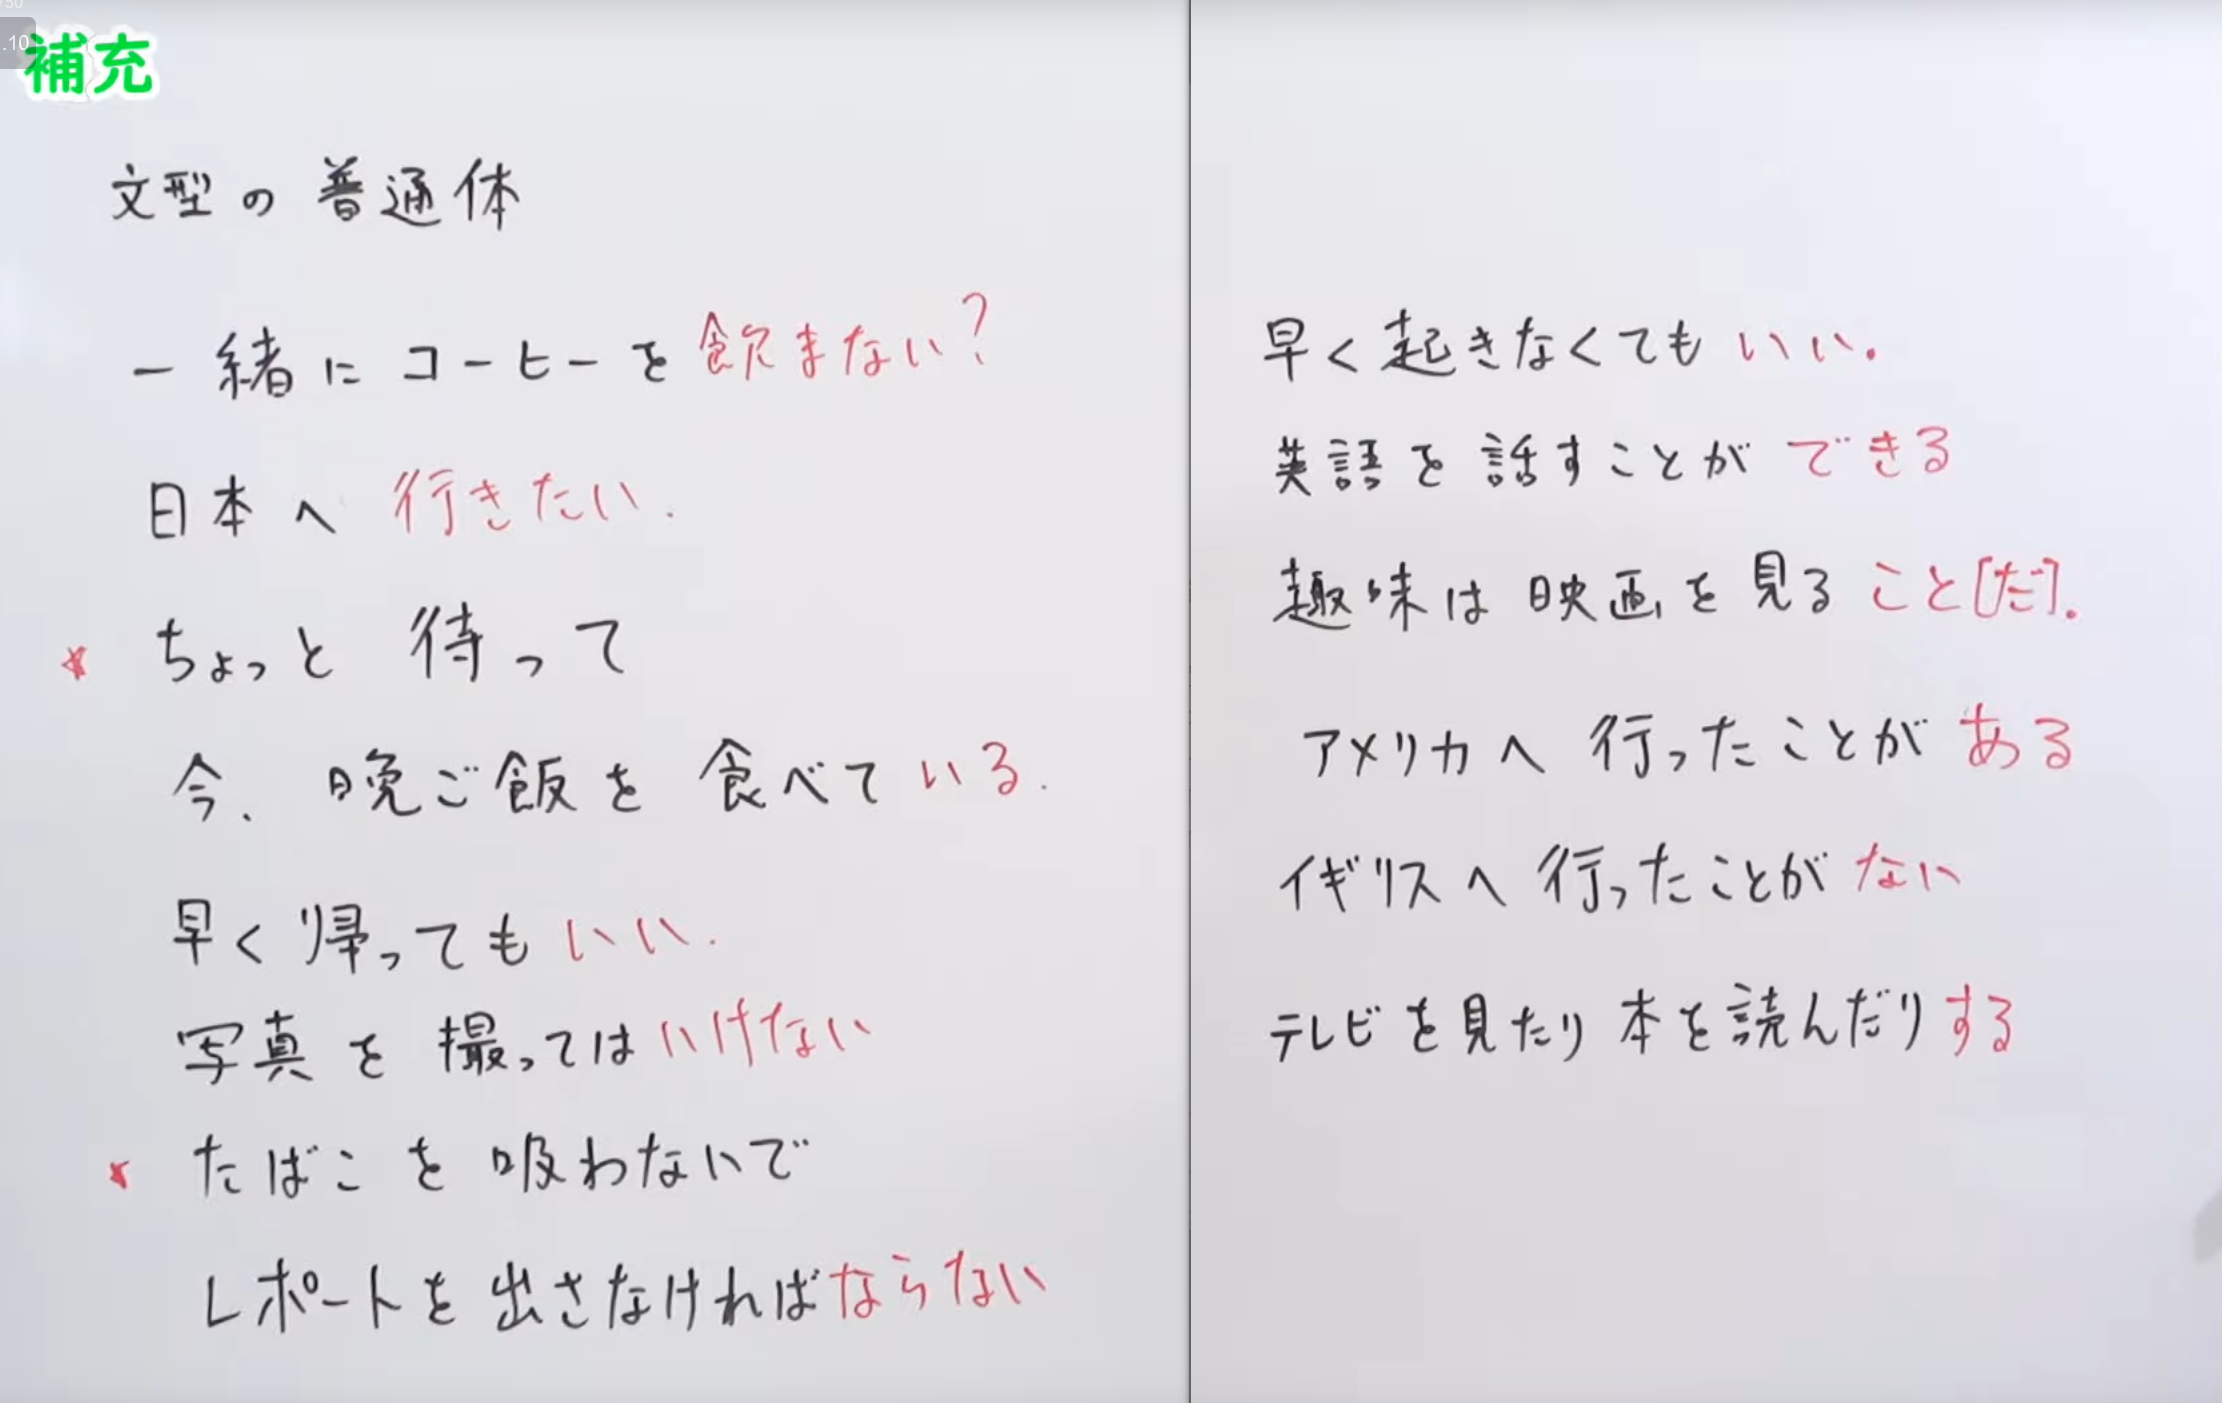 .10
補充
文型の普通体
一緒にコーヒーを飲まない?
日本へ行きたい.
* ちょっと待って
今、晩ご飯を食べている.
早く帰ってもいい.
写真を撮ってはいけない
* たばこを吸わないで
レポートを出さなければならない
早く起きなくてもいい.
英語を話すことができる
趣味は映画を見ること[だ].
アメリカへ行ったことがある
イギリスへ行ったことがない
テレビを見たり本を読んだりする